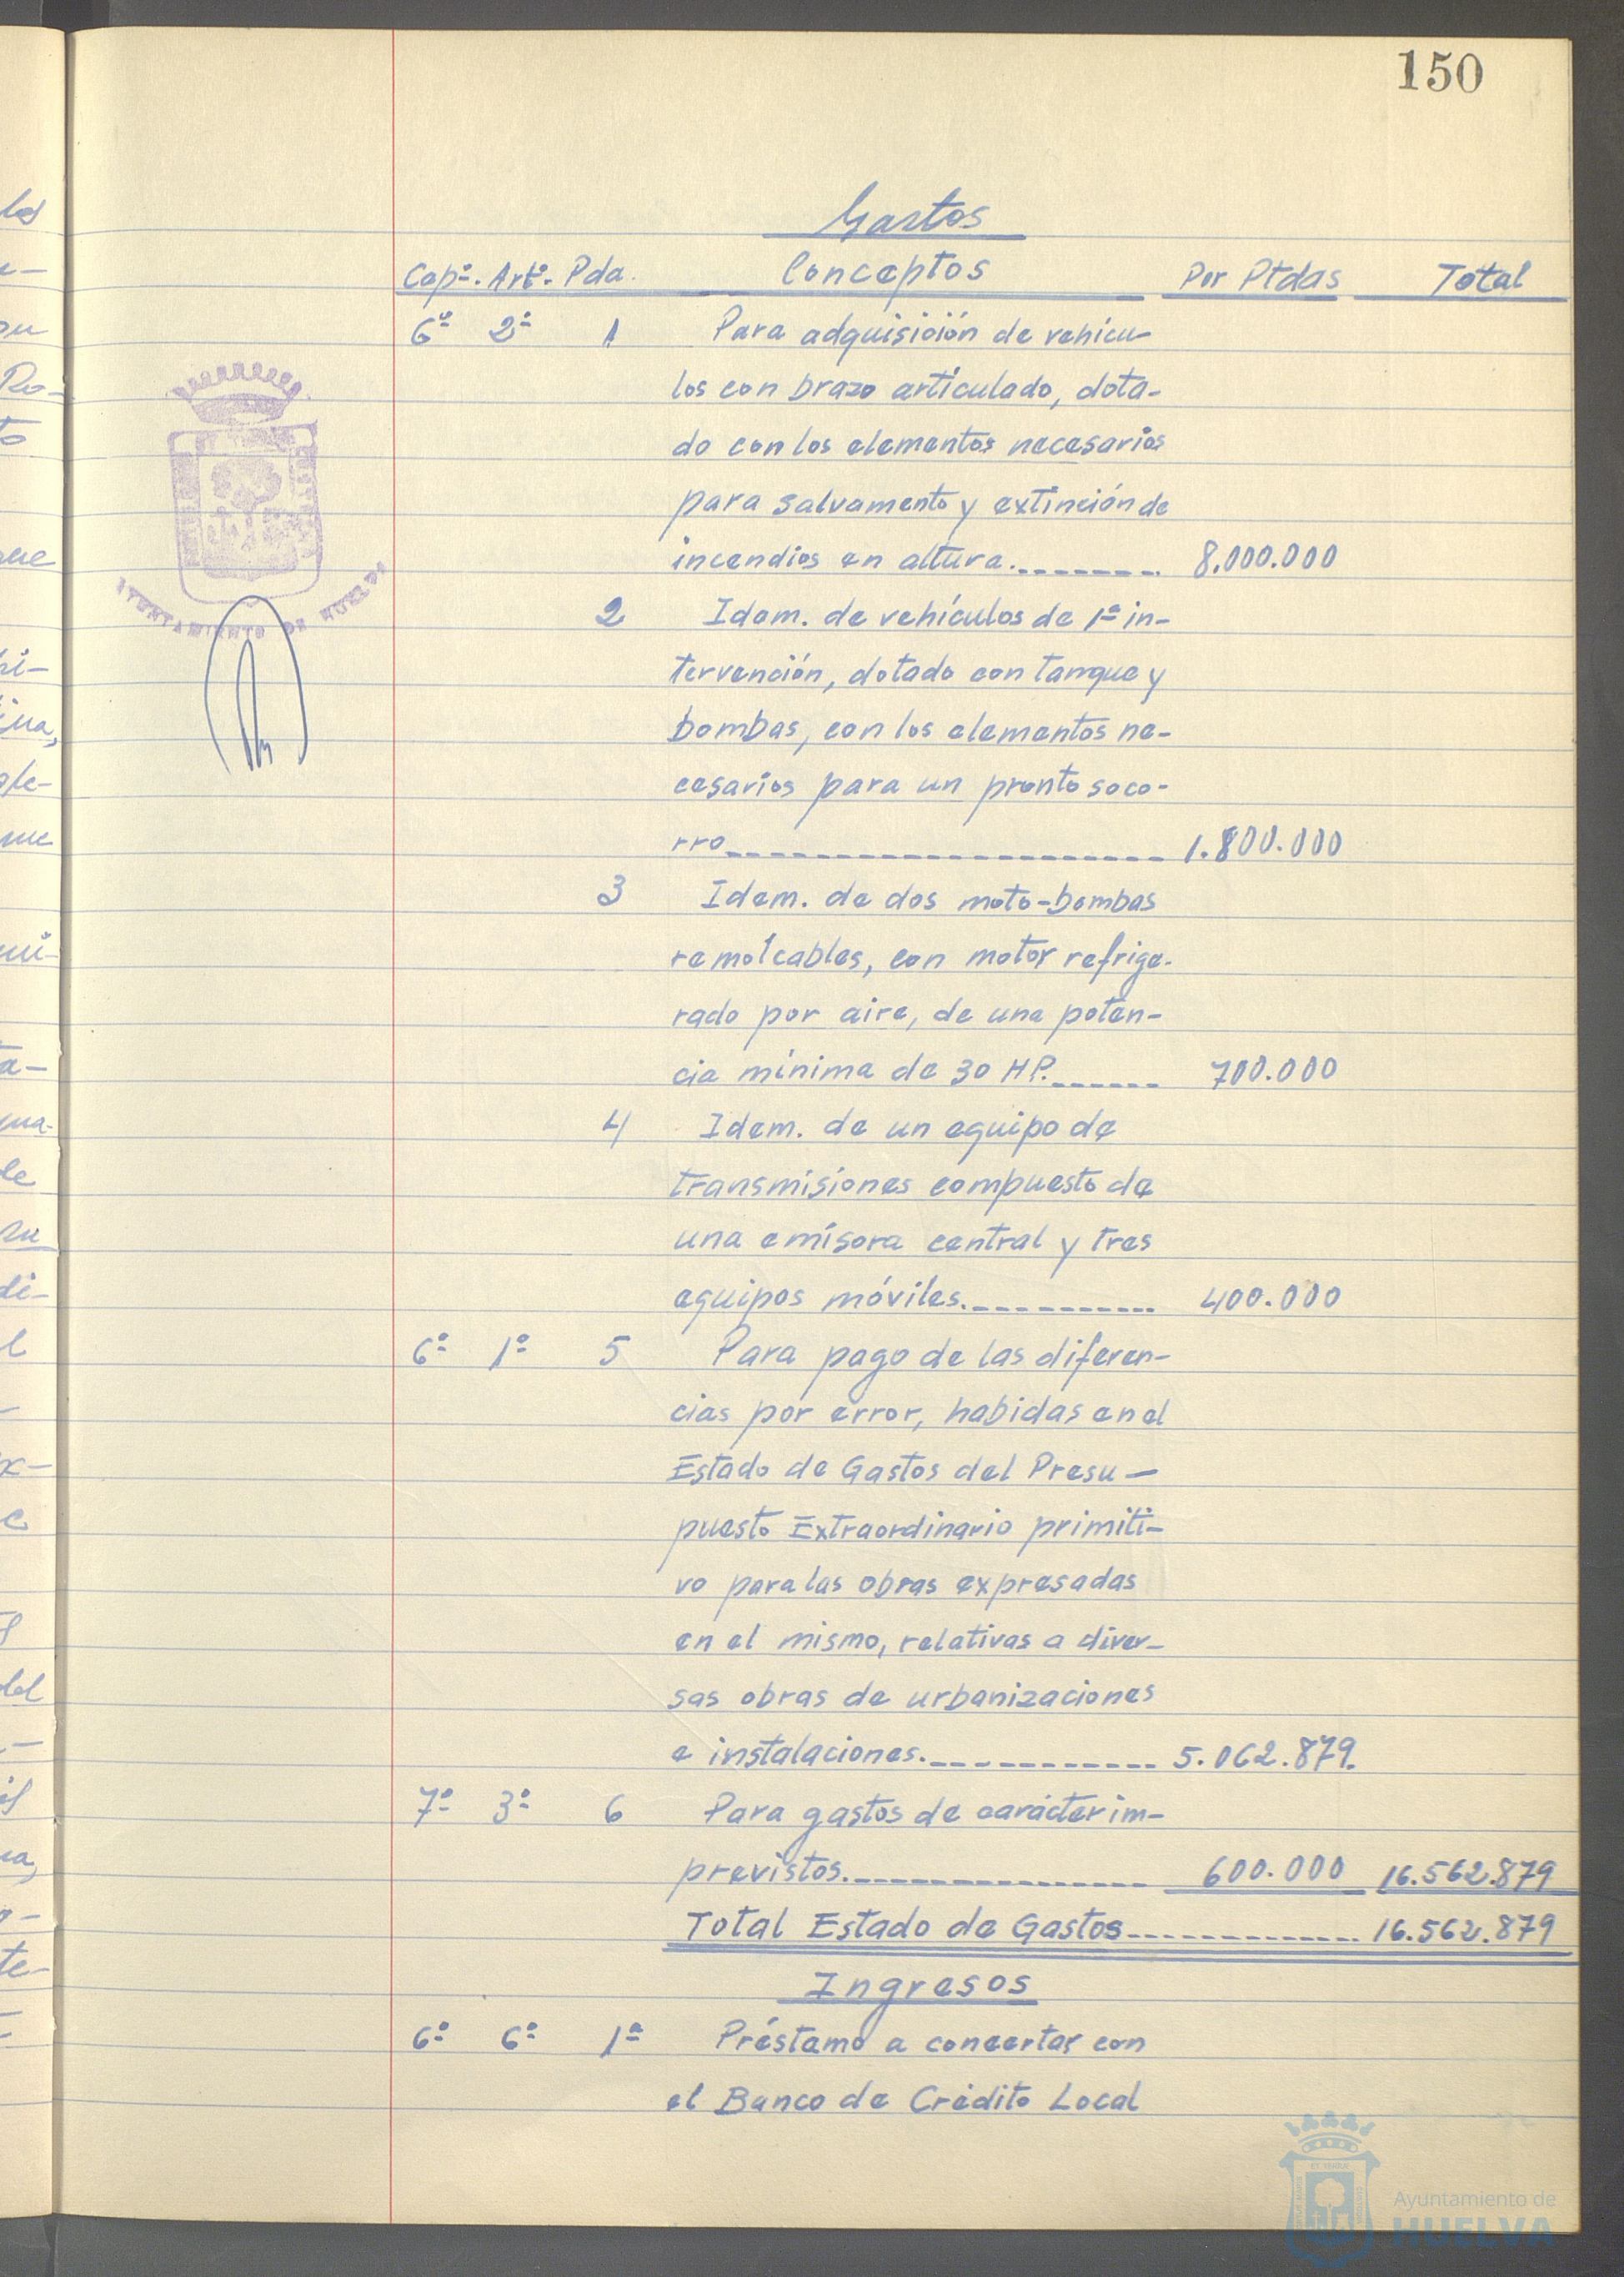 150
Gastos
Capº. Artº. Pda. Conceptos Por Ptdas Total
6º 2º 1 Para adquisición de vehícu-
los con brazo articulado, dota-
do con los elementos necesarios
para salvamento y extinción de
incendios en altura.-------- 8.000.000
2 Idem. de vehículos de 1ª in-
tervención, dotado con tanque y
bombas, con los elementos ne-
cesarios para un pronto soco-
rro-------------------- 1.800.000
3 Idem. de dos moto-bombas
remolcables, con motor refrige-
rado por aire, de una poten-
cia mínima de 30 HP.------ 700.000
4 Idem. de un equipo de
transmisiones compuesto de
una emisora central y tres
equipos móviles.----------- 400.000
6º 1º 5 Para pago de las diferen-
cias por error, habidas en el
Estado de Gastos del Presu-
puesto Extraordinario primiti-
vo para las obras expresadas
en el mismo, relativas a diver-
sas obras de urbanizaciones
e instalaciones.----------- 5.062.879.
7º 3º 6 Para gastos de carácter im-
previstos.---------------- 600.000 16.562.879
Total Estado de Gastos-------------- 16.562.879
Ingresos
6º 6º 1ª Préstamo a concertar con
el Banco de Crédito Local
AYUNTAMIENTO DE HUELVA
Ayuntamiento de
HUELVA